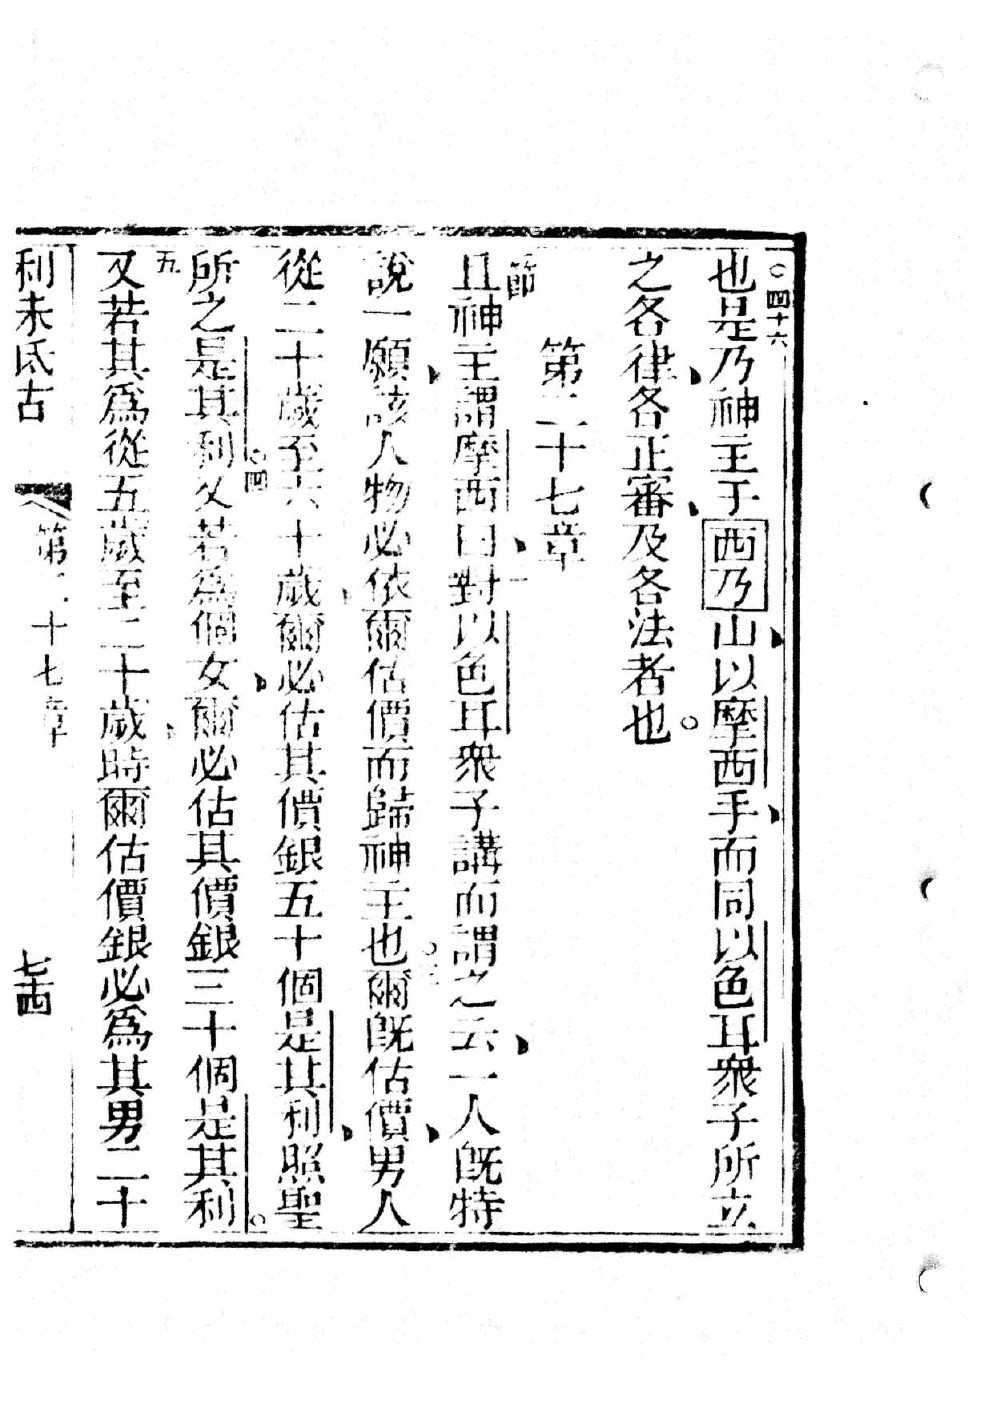 ○四十六
也是乃神主于西乃山以摩西手而同以色耳衆子所立
之各律各正審及各法者也○
第二十七章
節
且神主謂摩西曰對以色耳衆子講而謂之云一人旣特
說一願該人物必依爾估價而歸神主也○三爾旣估價男人
從二十歲至六十歲爾必估其價銀五十個是其利照聖
所之是其利○四又若為個女爾必估其價銀三十個是其利○
五
又若其爲從五歲至二十歲時爾估價銀必爲其男二十
利未氐古
第二十七章
七四